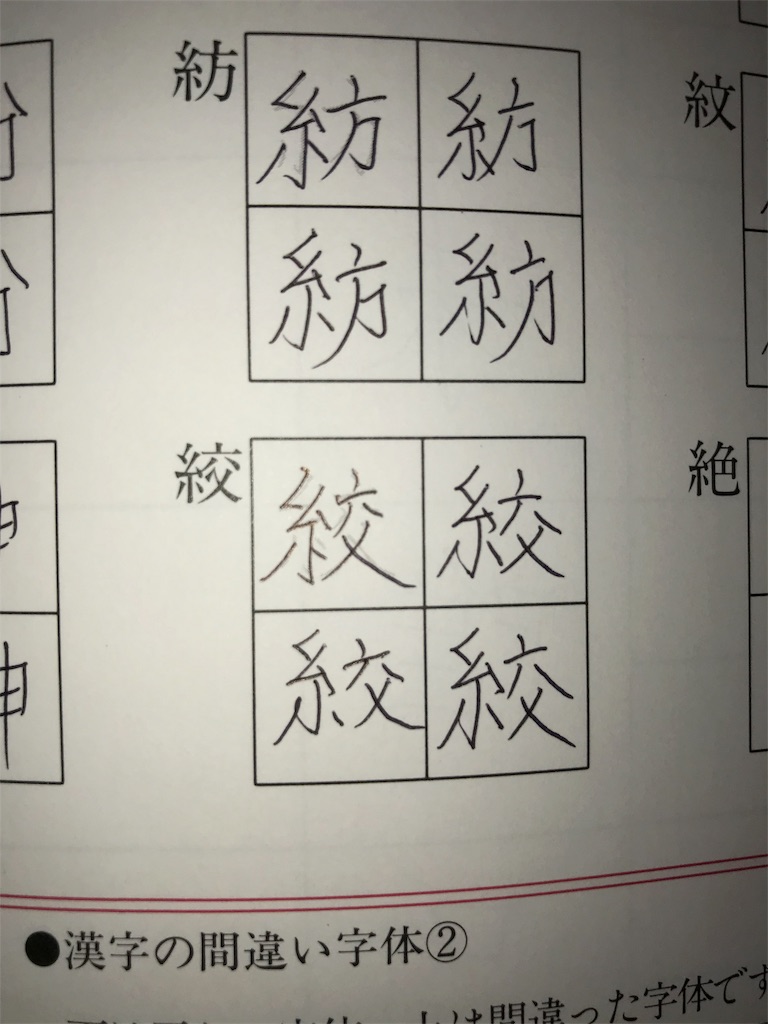 紡
紡 紡
紡 紡
紋
絞
絞 絞
絞 絞
絶
紳
●漢字の間違い字体②
は間違った字体です